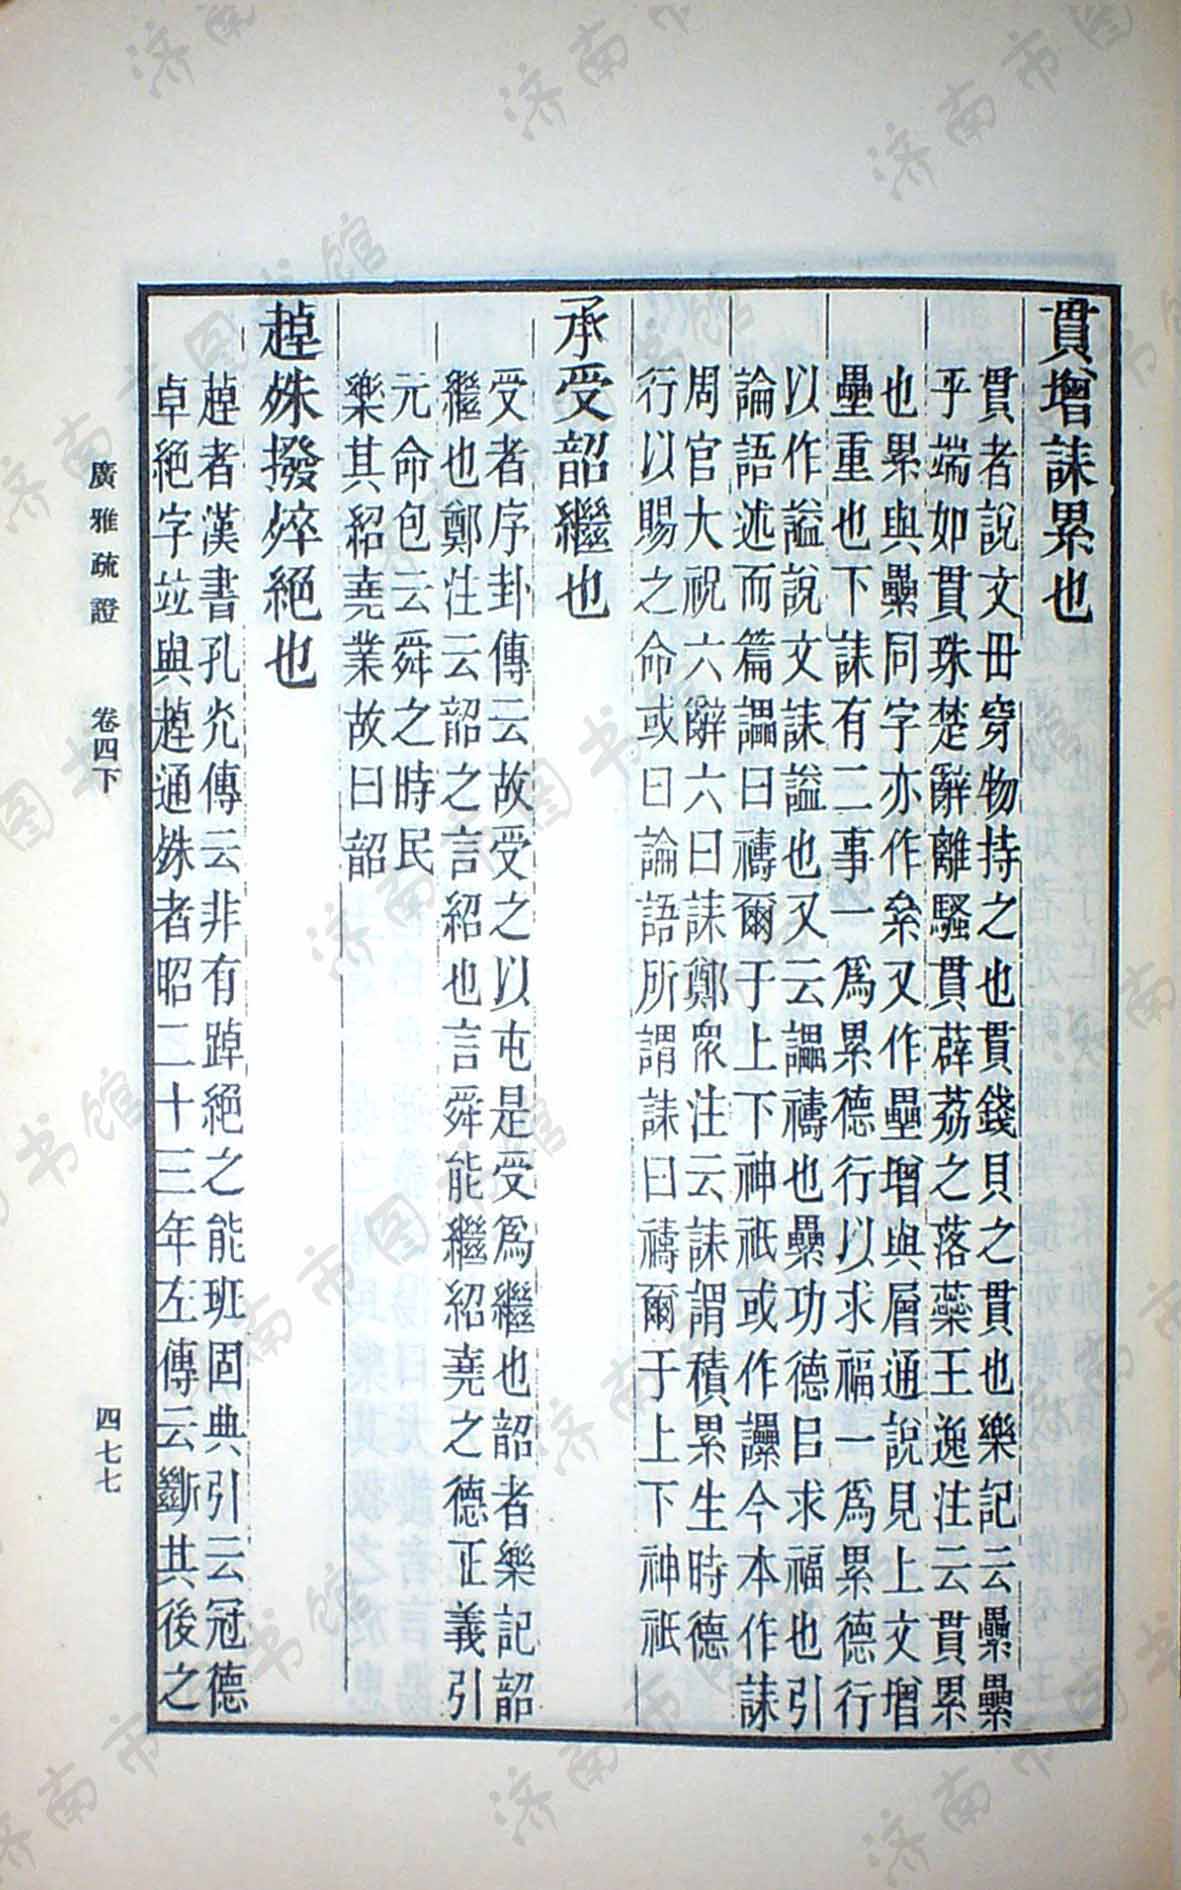 貫增誄累也
貫者說文毌穿物持之也貫錢貝之貫也樂記云纍纍
乎端如貫珠楚辭離騷貫薜荔之落蘂王逸注云貫累
也累與纍同字亦作絫又作壘增與層通說見上文增
壘重也下誄有二事一爲累德行以求福一爲累德行
以作謚說文誄謚也又云讄禱也纍功德㠯求福也引
論語述而篇讄曰禱爾于上下神祇或作讄今本作誄
周官大祝六辭六曰誄鄭眾注云誄謂積累生時德
行以賜之命或曰論語所謂誄曰禱爾于上下神祇
承受韶繼也
受者序卦傳云故受之以屯是受爲繼也韶者樂記韶
繼也鄭注云韶之言紹也言舜能繼紹堯之德正義引
元命包云舜之時民
樂其紹堯業故曰韶
趠殊撥焠絕也
趠者漢書孔光傳云非有踔絕之能班固典引云冠德
卓絕字並與趠通殊者昭二十三年左傳云斷其後之
廣雅疏證 卷四下 四七七
济南市图书馆